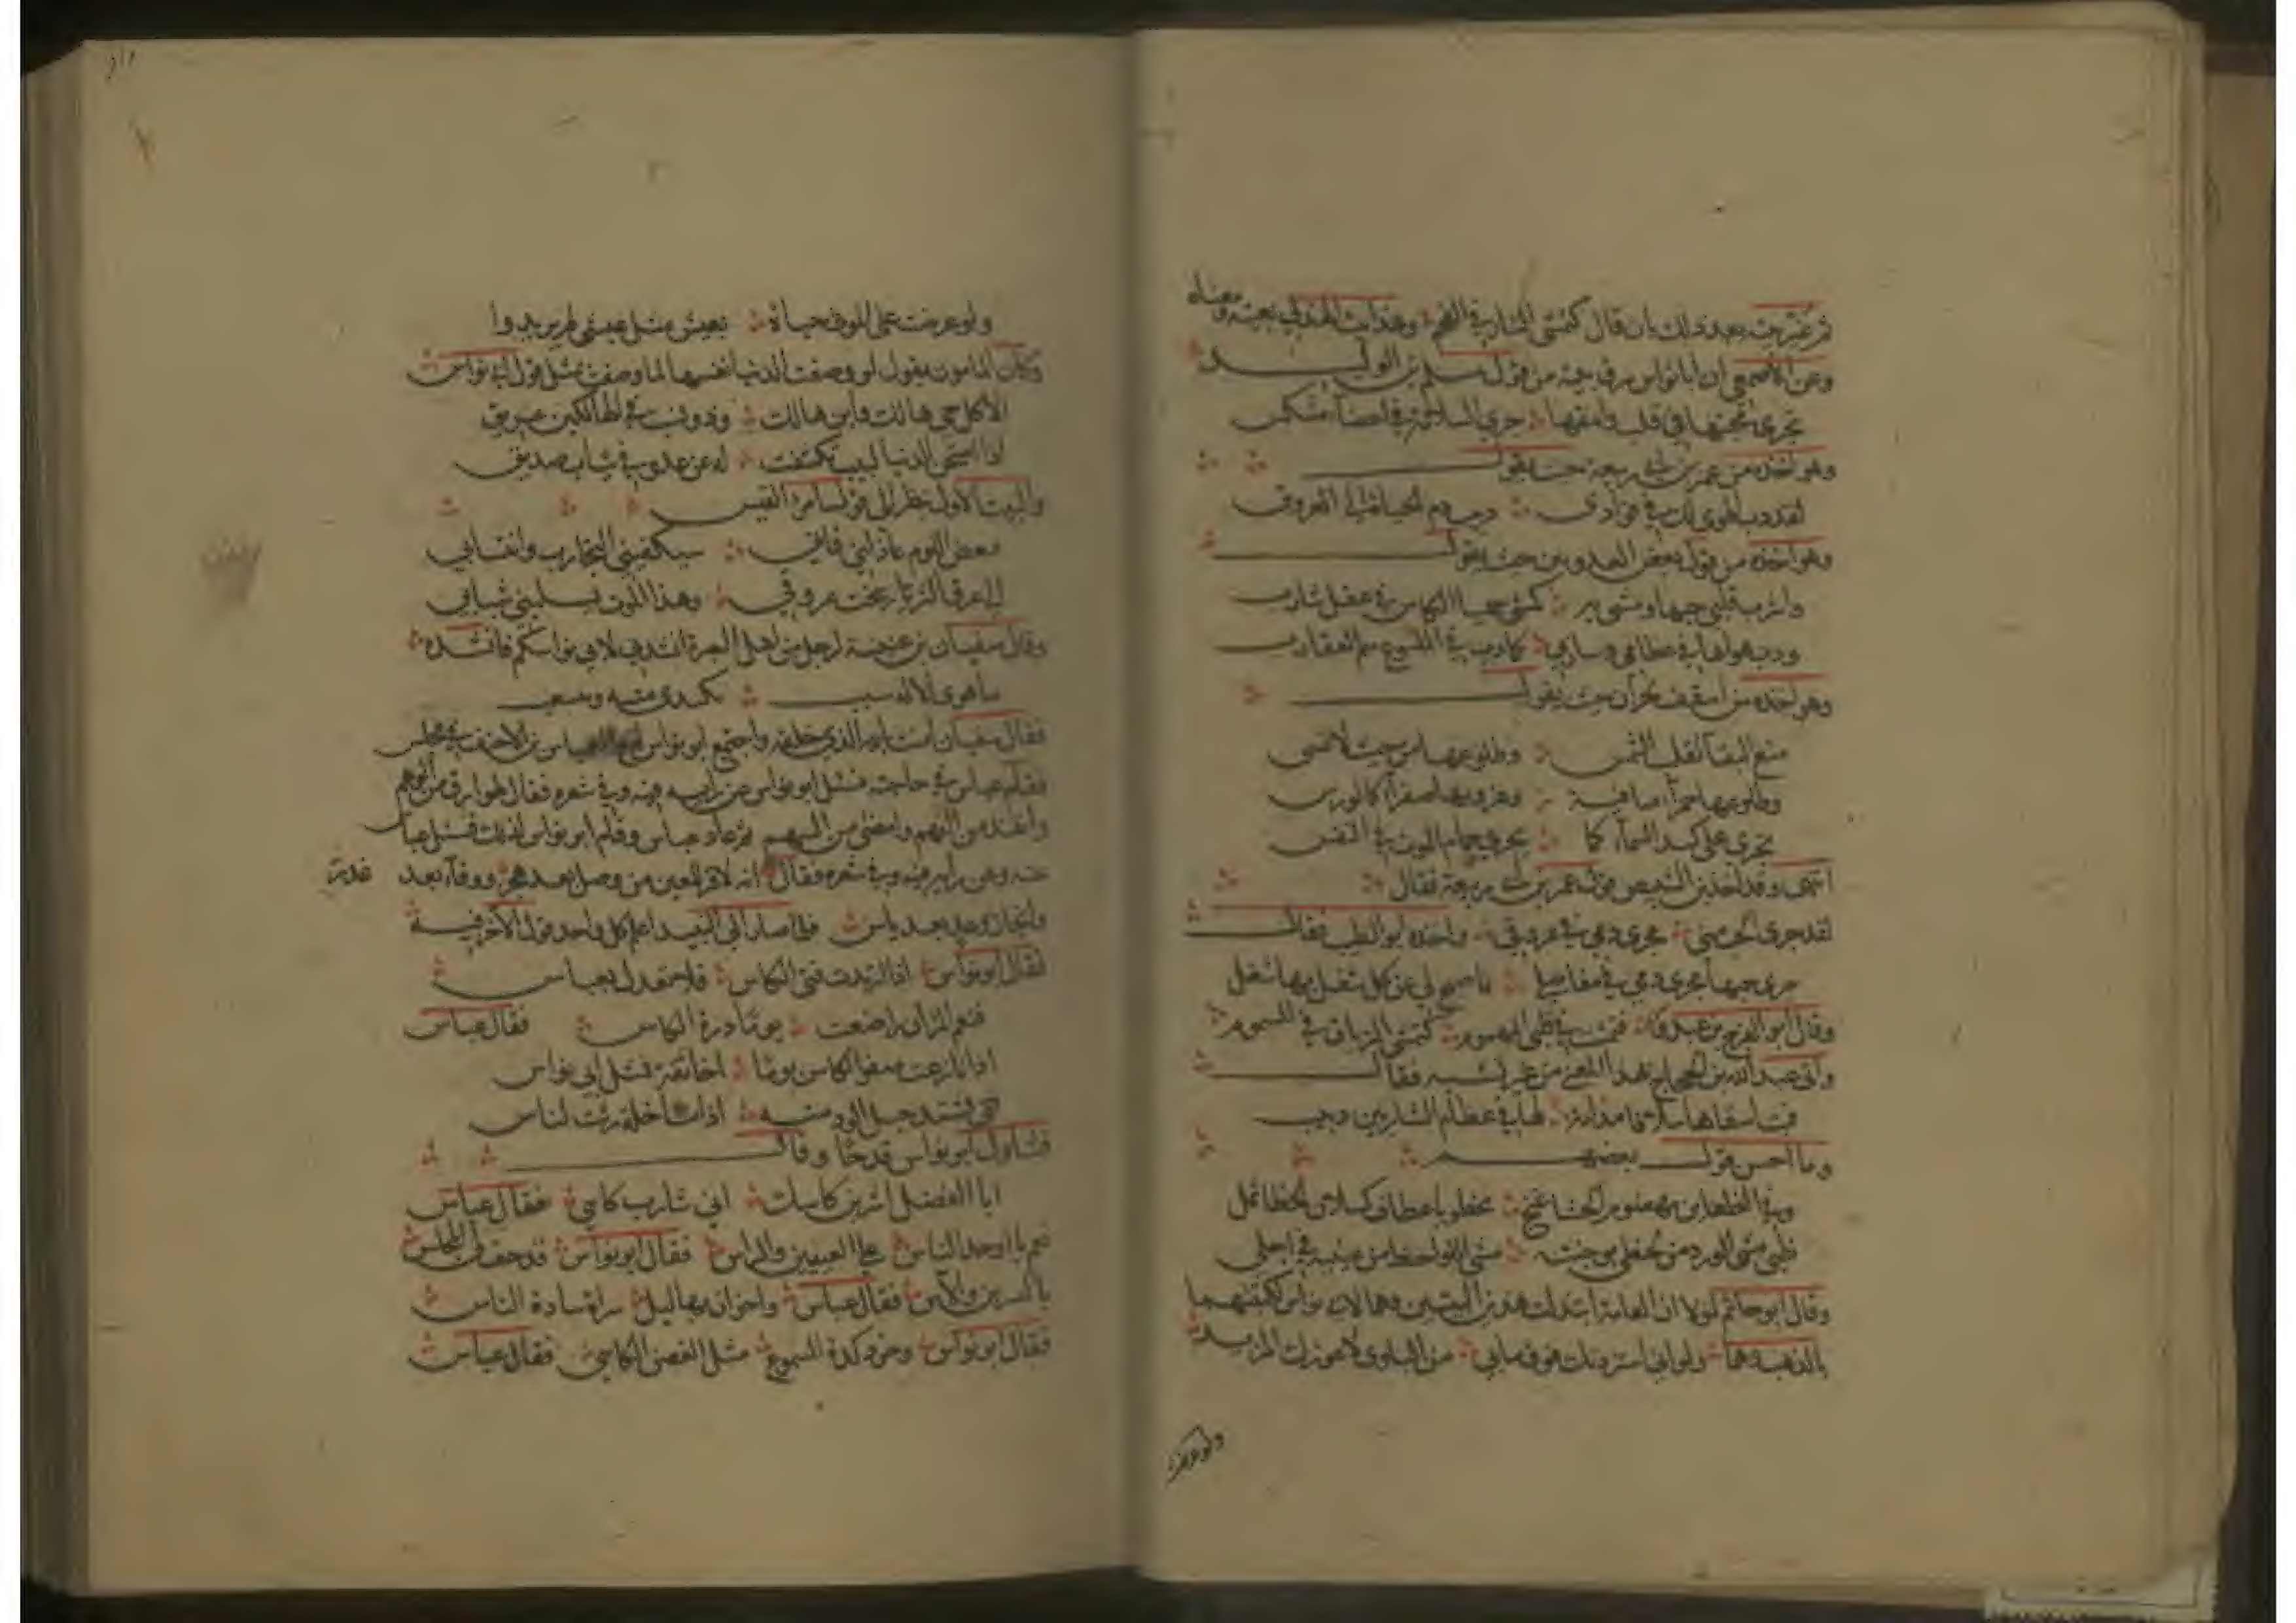 ثم غيرته بعد ذلك بان قال كمشي النار في الفحم وهذا بيت الهذلي بعينه ومعناه
وعن الأصمعي ان ابا نواس سرق بيته من قول مسلم بن الوليد
تجري محبتها في قلب وامقها جري السلامة في اعضاء منتكس
وهو اخذه من عمر بن ابي ربيعة حيث يقول
لقد دب الهوى لك في فوادي دبيب دم الحياة الى العروق
وهو اخذه من قول بعض العذريين حيث يقول
واشرب قلبي حبها ومشى به كمشي حميا الكاس في عقل شارب
ودب هواها في عظامي وسارى كما دب في الملسوع سم العقارب
وهو اخذه من اسقف نجران حيث يقول
منع البقا تقلب الشمس وطلوعها من حيث لا تمسي
وطلوعها حمرآء صافية وغروبها صفرآء كالورس
تجري على كبد السمآء كما يجري حمام الموت في النفس
انتهى وقد اخذ ابو الشيص قول عمر بن ابي ربيعة فقال
لقد جرى الحب مني مجرى دمي في عروقي واخذه ابو الطيب فقال
جرى حبها مجرى دمي في مفاصلي فاصبح لي عن كل شغل بها شغل
وقال ابو الفرج
واتى عبد الله بن الحجاج بهذا المعنى من غير تشبيه فقال
فبت اسقاها سلافا مدامة لها في عظام الشاربين دبيب
وما احسن قول بعضهم
وقال ابو حاتم لولا ان العامة ابتذلت هذين البيتين وهما لابي نواس لكتبتهما
بالذهب وهما ولو اني استزدتك فوق ما بي من البلوى لاعوزك المزيد
ولو عرضت
ولو عرضت على الموتى حياة بعيش مثل عيشي لم يريدوا
وكان المامون يقول لو وصفت الدنيا نفسها لما وصفت بمثل قول ابي نواس
الا كل حي هالك وابن هالك وذو نسب في الهالكين عريق
اذا امتحن الدنيا لبيب تكشفت له عن عدو في ثياب صديق
والبيت الاول ينظر الى قول امرئ القيس
فبعض اللوم عاذلتي فاني سيكفيني التجارب وانتسابي
الى عرق الثرى وشجت عروقي وهذا الموت يسلبني شبابي
وقال سفيان بن عيينة لرجل من اهل البصرة انشدني لابي نواسكم فانشده
ما هوى الا له سبب يبتدي منه وينشعب
فقال سفيان امنت بالذي خلقه واجتمع ابو نواس مع العباس بن الاحنف في مجلس
فقام عباس في حاجة فسئل ابو نواس عن رايه فيه وفي شعره فقال لهو ارق من الوهم
وانفذ من الفهم وامضى من السهم ثم عاد عباس وقام ابو نواس لذلك فسئل عباس
عنه وعن رايه فيه وفي شعره فقال انه لاقر للعين من وصل بعد هجر ووفآء بعد غدر
وانجاز وعد بعد ياس فلما صارا الى النبيذ اعلم كل واحد قول الآخر فيه
فقال ابو نواس اذا ارتدت فتى الكاس فلا تعدل بعباس
فنعم المرء ان راضعت يوما درة الكاس فقال عباس
اذا نازعت صفو الكاس يوما اخا ثقة فمثل ابي نواس
فتى يشتد حبل الود منه اذا ما خلة رثت لناس
فتناول ابو نواس قدحا وقال
ابا الفضل اشربن كاسك اني شارب كاسي فقال عباس
نعم يا اوحد الناس على العينين والراس فقال ابو نواس فقد حف لنا المجلس
بالنسرين والآس فقال عباس واخوان بهاليل سراة سادة الناس
فقال ابو نواس وخود لذة المسموع مثل الغصن الكاسي فقال عباس